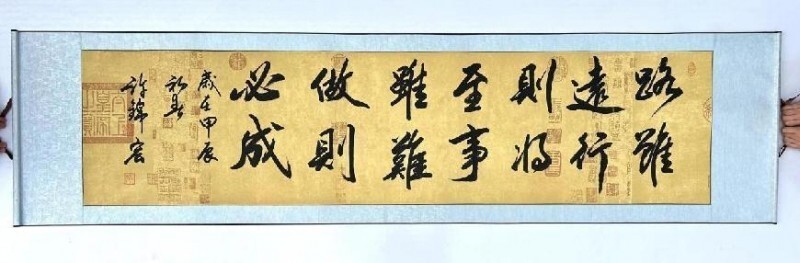 路雖
遠行
則將
至事
雖難
做則
必成
歲在甲辰
初春
許錦宏